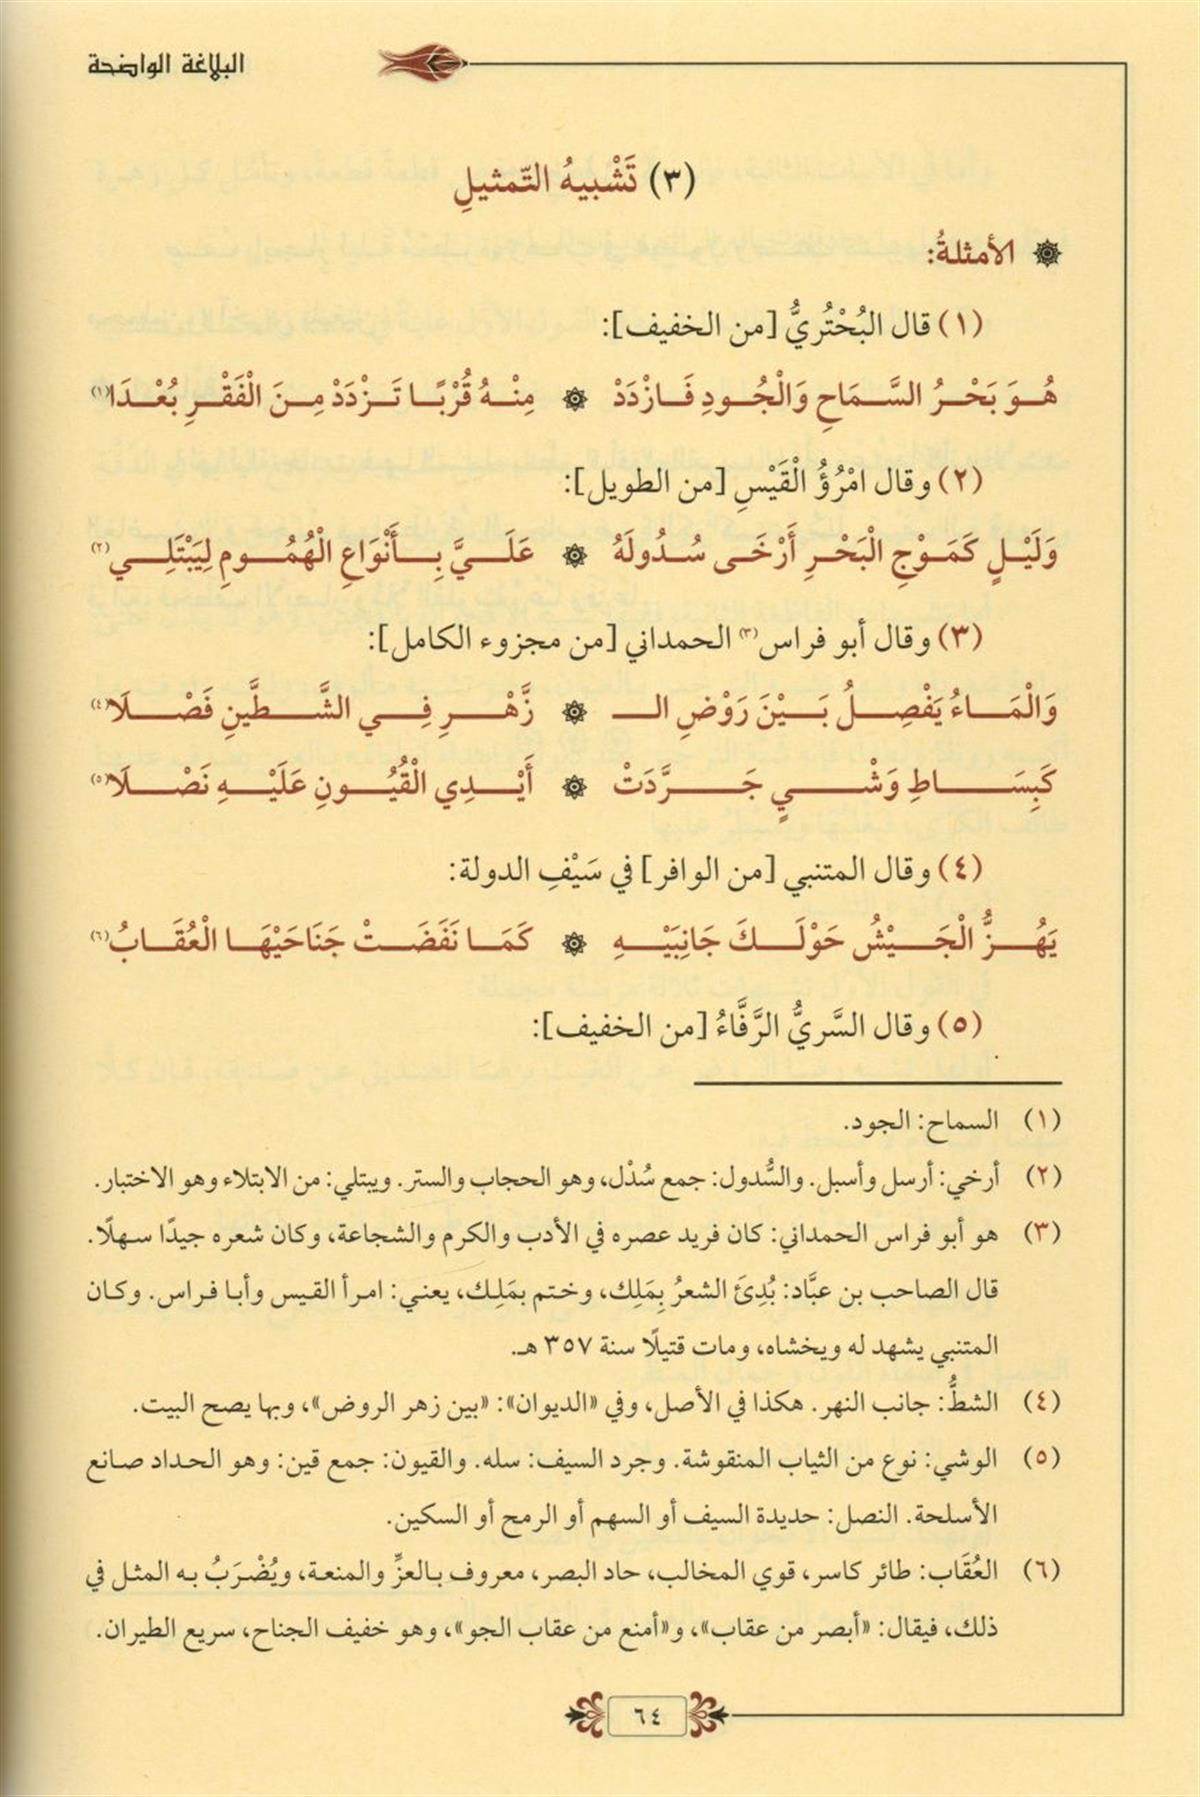 البلاغة الواضحة
(٣) تَشْبيهُ التّمثيلِ
الأمثلةُ:
(١) قال البُحْتُريُّ [من الخفيف]:
هُـوَ بَحْـرُ السَّـمَاحِ وَالْجُـودِ فَـازْدَدْ ۞ مِنْـهُ قُرْبًـا تَـزْدَدْ مِـنَ الْفَقْـرِ بُعْـدَا(١)
(٢) وقال امْرُؤُ الْقَيْسِ [من الطويل]:
وَلَيْـلٍ كَمَـوْجِ الْبَحْـرِ أَرْخَـى سُـدُولَهُ ۞ عَلَـيَّ بِـأَنْوَاعِ الْهُمُـومِ لِيَبْتَلِـي(٢)
(٣) وقال أبو فراس(٣) الحمداني [من مجزوء الكامل]:
وَالْمَـاءُ يَفْصِـلُ بَـيْنَ رَوْضِ الـ ۞ زَّهْـرِ فِـي الشَّـطَّينِ فَصْـلَا(٤)
كَبِسَـاطِ وَشْـيٍ جَـرَّدَتْ ۞ أَيْـدِي الْقُيُـونِ عَلَيْـهِ نَصْـلَا(٥)
(٤) وقال المتنبي [من الوافر] في سَيْفِ الدولة:
يَهُـزُّ الْجَـيْشُ حَوْلَـكَ جَانِبَيْـهِ ۞ كَمَـا نَفَضَـتْ جَنَاحَيْهَـا الْعُقَـابُ(٦)
(٥) وقال السَّريُّ الرَّفَّاءُ [من الخفيف]:
(١) السماح: الجود.
(٢) أرخي: أرسل وأسبل. والسُّدول: جمع سُدْل، وهو الحجاب والستر. ويبتلي: من الابتلاء وهو الاختبار.
(٣) هو أبو فراس الحمداني: كان فريد عصره في الأدب والكرم والشجاعة، وكان شعره جيدًا سهلًا.
قال الصاحب بن عبَّاد: بُدِئَ الشعرُ بِمَلِك، وختم بمَلِك، يعني: امرأ القيس وأبا فراس. وكان
المتنبي يشهد له ويخشاه، ومات قتيلًا سنة ٣٥٧ هـ.
(٤) الشطُّ: جانب النهر. هكذا في الأصل، وفي «الديوان»: «بين زهر الروض»، وبها يصح البيت.
(٥) الوشي: نوع من الثياب المنقوشة. وجرد السيف: سله. والقيون: جمع قين: وهو الحداد صانع
الأسلحة. النصل: حديدة السيف أو السهم أو الرمح أو السكين.
(٦) العُقَاب: طائر كاسر، قوي المخالب، حاد البصر، معروف بالعزِّ والمنعة، ويُضْرَبُ به المثل في
ذلك، فيقال: «أبصر من عقاب»، و«أمنع من عقاب الجو»، وهو خفيف الجناح، سريع الطيران.
٦٤